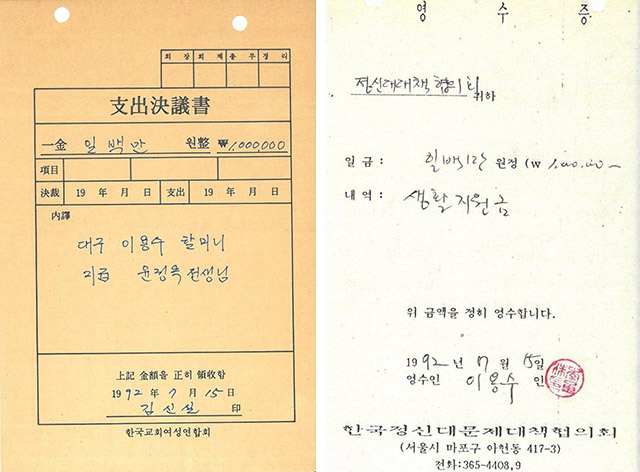 회장 회계 총무 경리
支出決議書
一金 일백만 원整 ₩1,000,000
項目
決裁 19 年 月 日 支出 19 年 月 日
内譯
대구 이용수 할머니
지급 윤정옥 전생님
上記 金額을 正히 領收함
1992年 7月 15日
김신실 印
한국교회여성연합회
영 수 증
정신대대책협의회 귀하
일금 : 일백만 원정 (₩ 1,000,000-
내역 : 생활지원금
위 금액을 정히 영수합니다.
1992년 7월 15일
영수인 이용수 인
한국정신대문제대책협의회
(서울시 마포구 아현동 417-3)
전화:365-4408,9